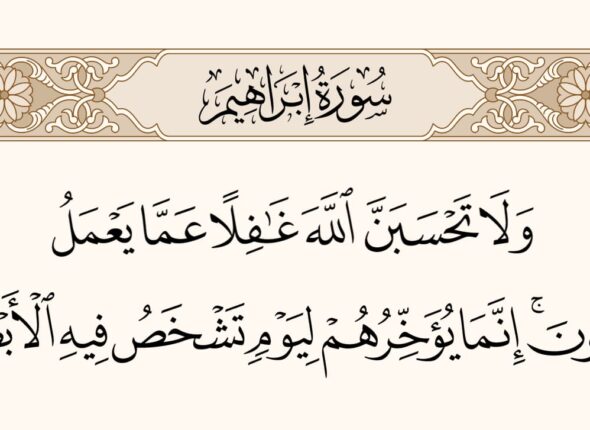 سُورَةُ إِبْرَاهِيمَ
وَلَا تَحْسَبَنَّ ٱللَّهَ غَٰفِلًا عَمَّا يَعْمَلُ
إِنَّمَا يُؤَخِّرُهُمْ لِيَوْمٍ تَشْخَصُ فِيهِ